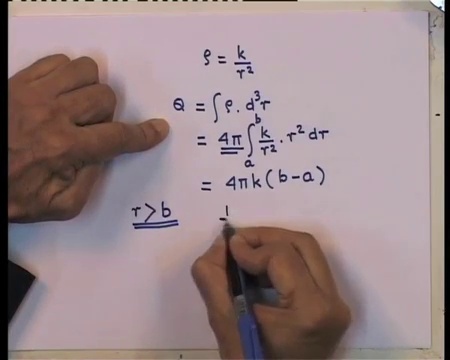 ρ = k/r²
Q = ∫ ρ. d³r
= 4π ∫ₐᵇ k/r² . r² dr
= 4πk(b-a)
r>b